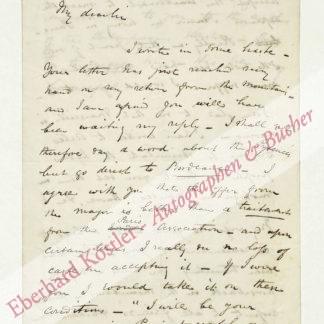 My dear Sir
I write in some haste -
Your letter has just reached my
hand on my return from the mountains
and I am afraid you will have
been waiting my reply - I shall not
therefore say a word about the
but go direct to Bordeaux - I
agree with you that the offer from
the major is better than a
from the Paris Association - and upon
certain I really see no loss of
in accepting it - If I were
you I would take it on these
conditions - "I will be your
Eberhard Köstler - Autographen & Bücher